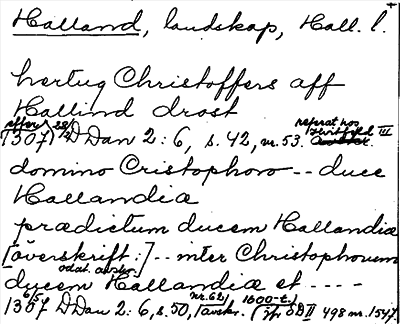 Halland, landskap, Hall. l.
hertug Christoffers aff
Hallind drost
efter referat hos
1307 23/2 DDan 2: 6, s. 42, nr. 53. Hvitfeld III
domino Cristophoro -- duce
Hallandiæ
prædictum ducem Hallandiæ
[överskrift:] -- inter Christophorum
odat. avskr.
ducem Hallandiæ et ----
nr. 62 1600-t.
1307 6/5 DDan 2: 6, s. 50, (avskr. ) SD II 498 nr. 1547.